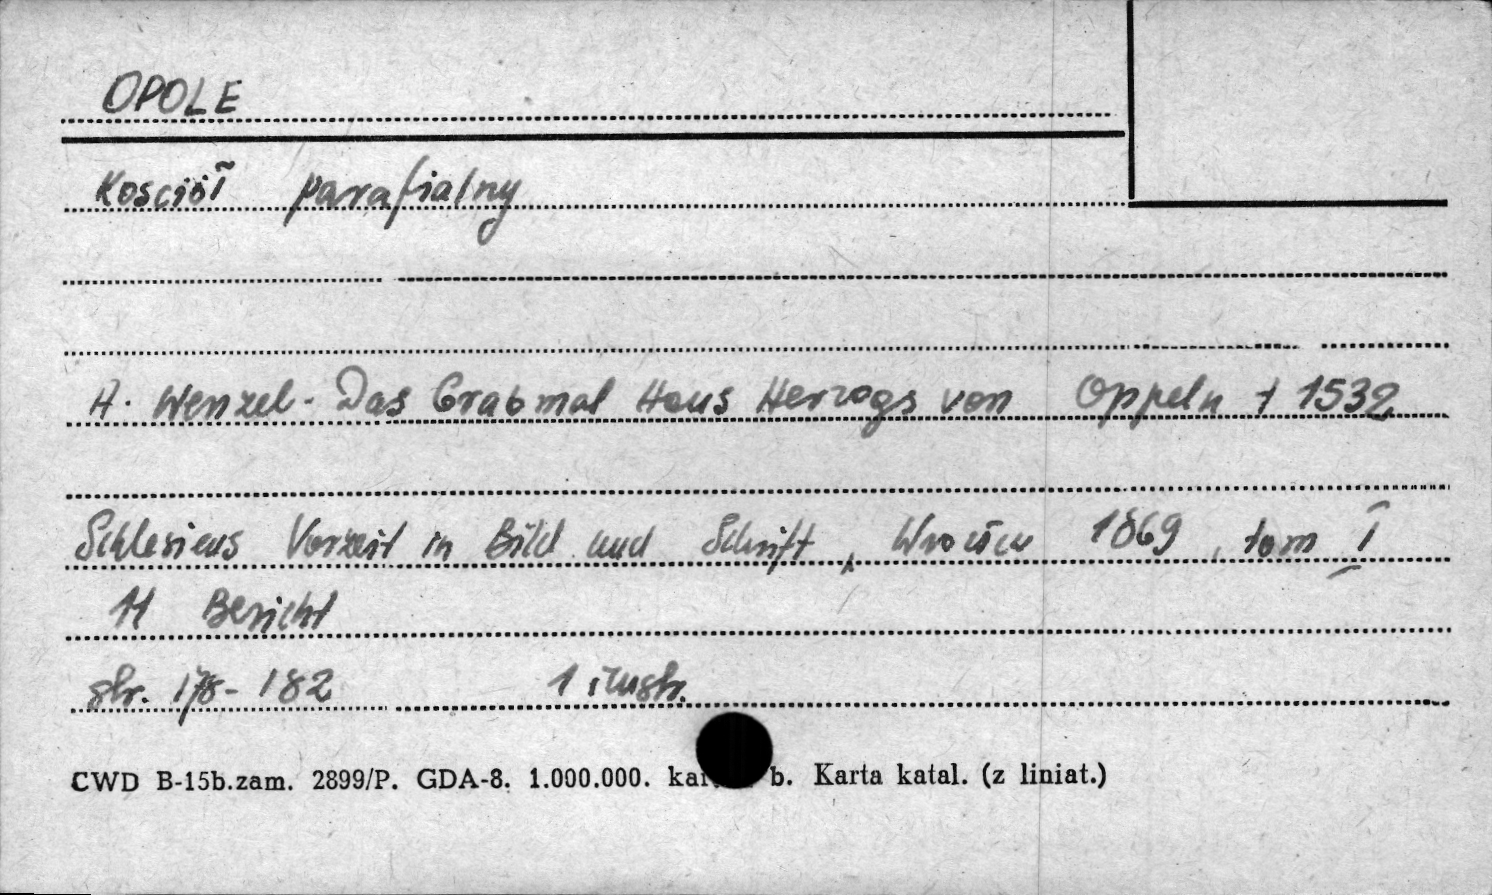 OPOLE
Kościół parafialny
A. Wenzel - Das Grabmal Hans Herzogs von Oppeln † 1532
Schlesiens Vorzeit in Bild und Schrift, Wrocław 1869, tom I
11 Bericht
str. 178-182 1 ilustr.
CWD B-15b.zam. 2899/P. GDA-8. 1.000.000. b. Karta katal. (z liniat.)